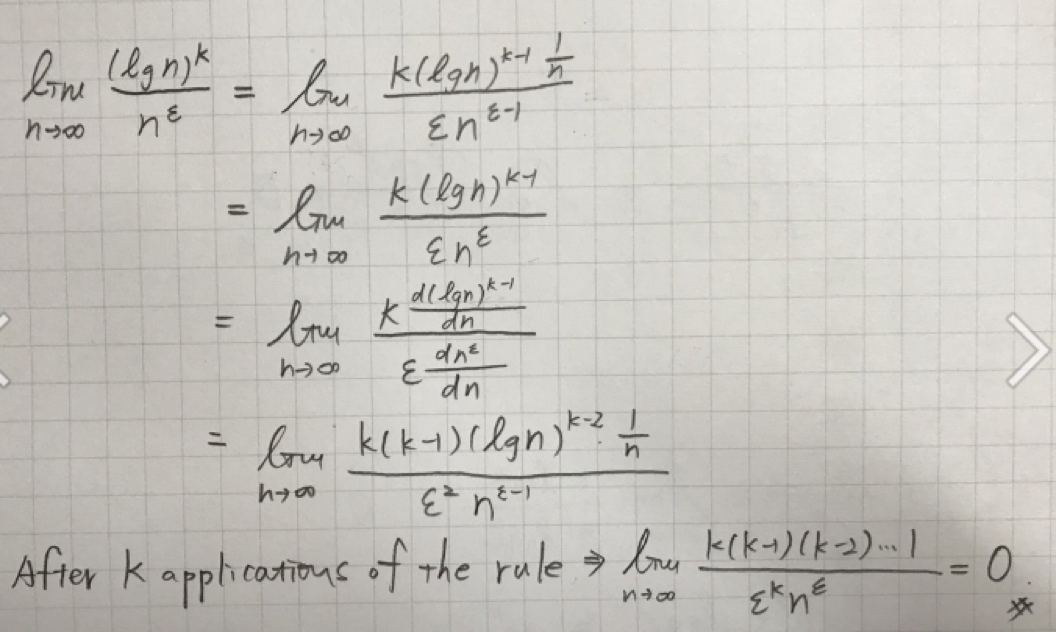 lim n→∞ (lg n)^k / n^ε = lim n→∞ k(lg n)^(k-1) 1/n / ε n^(ε-1)
= lim n→∞ k(lg n)^(k-1) / ε n^ε
= lim n→∞ k d(lg n)^(k-1)/dn / ε dn^ε/dn
= lim n→∞ k(k-1)(lg n)^(k-2) 1/n / ε² n^(ε-1)
After k applications of the rule ⇒ lim n→∞ k(k-1)(k-2)...1 / ε^k n^ε = 0.